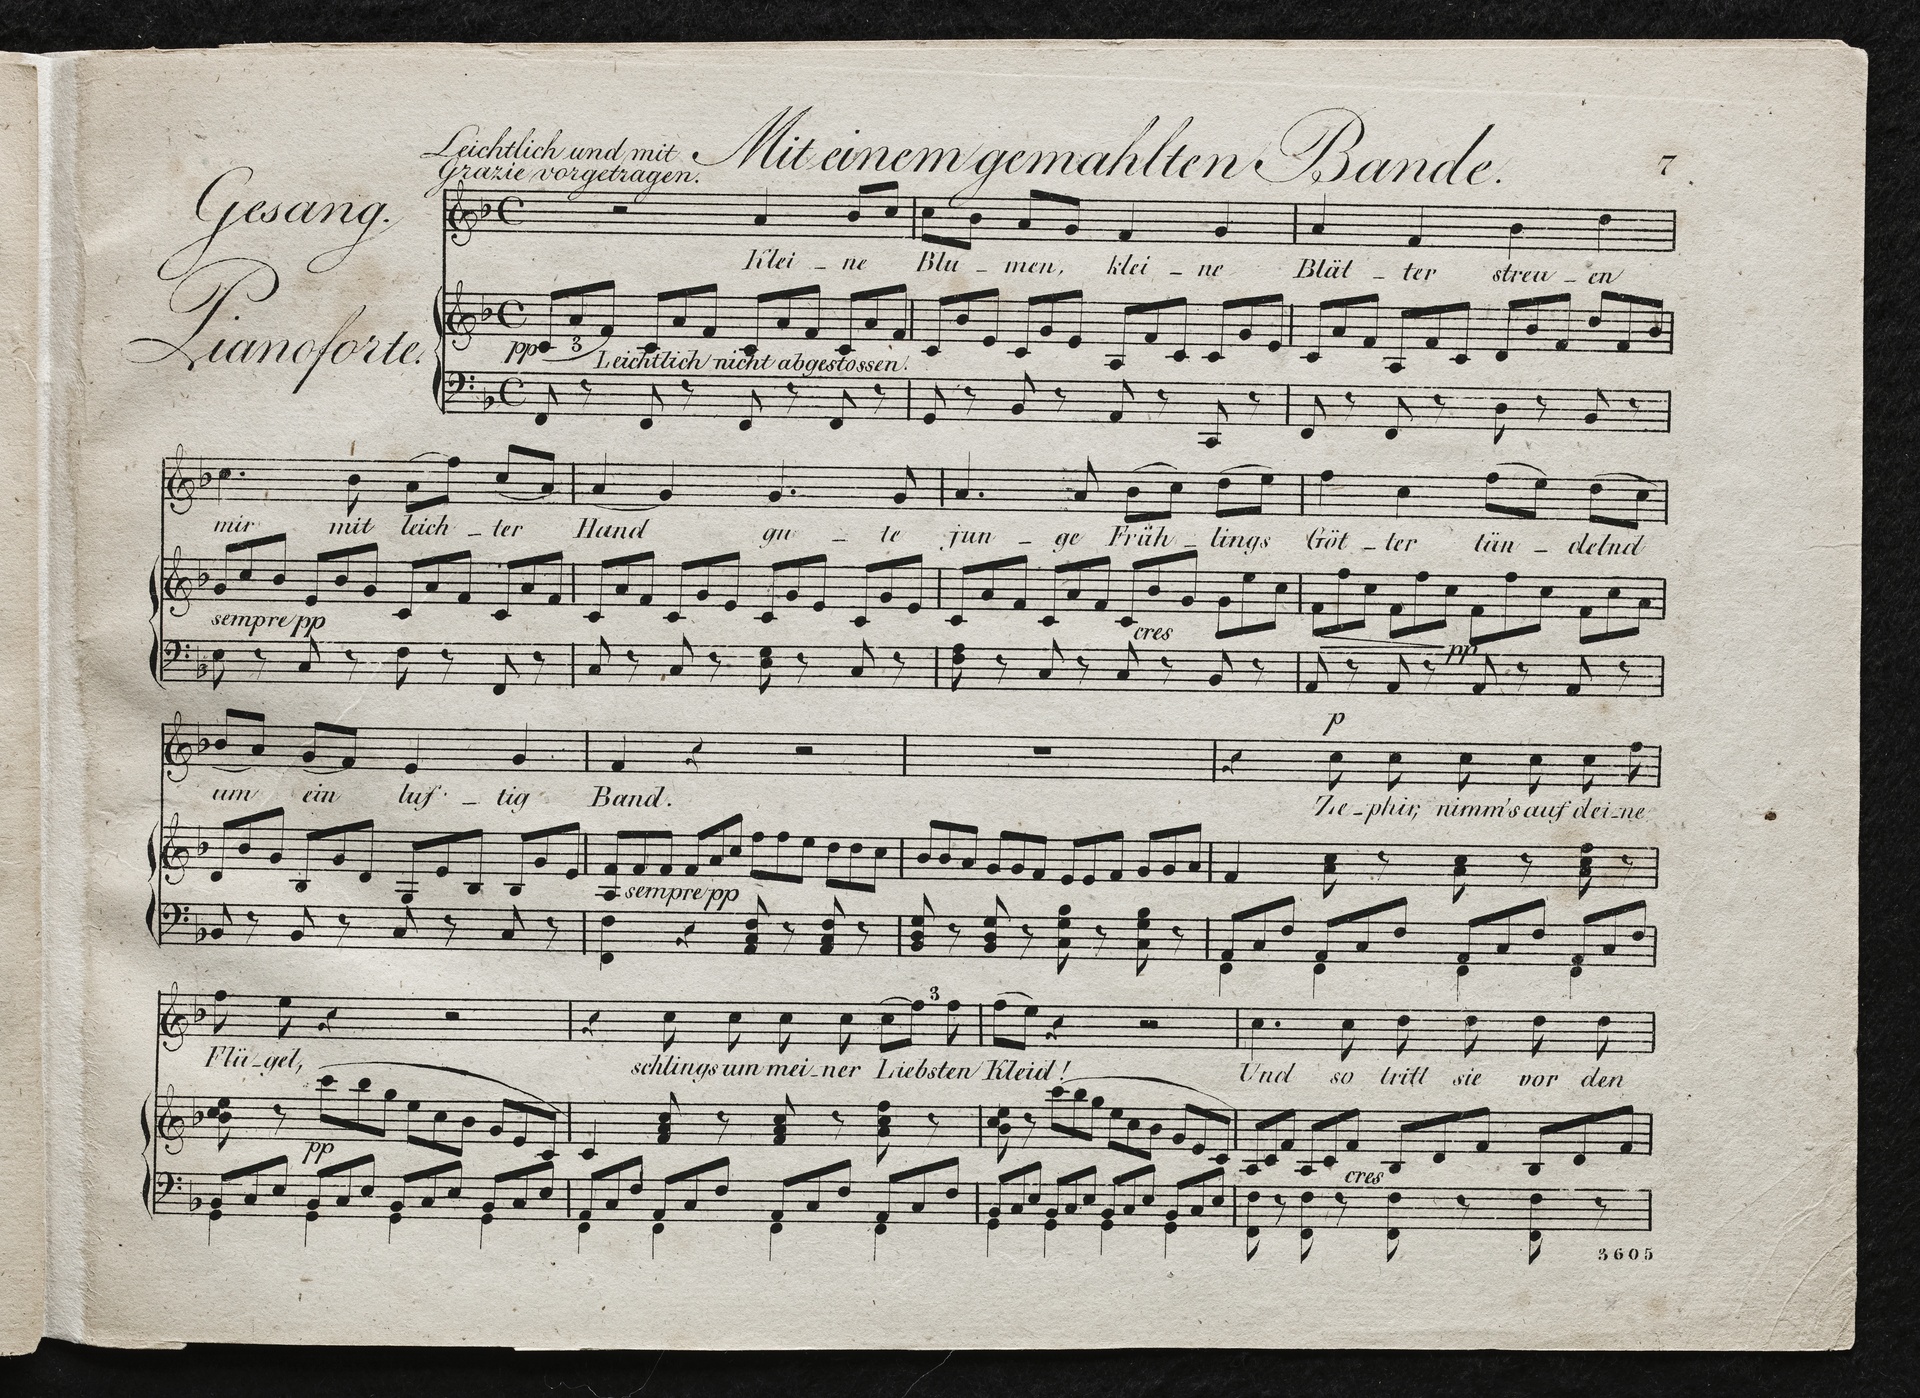 Leichtlich und mit Grazie vorgetragen.
Mit einem gemahlten Bande.
7
Gesang.
Klei _ ne Blu _ men, klei _ ne Blät _ ter streu _ en
Pianoforte.
pp 3 Leichtlich nicht abgestossen.
mir mit leich _ ter Hand gu _ te jun _ ge Früh _ lings Göt _ ter tän _ delnd
sempre pp cres pp
p
um ein luf _ tig Band. Ze _ phir, nimm's auf dei _ ne
sempre pp
3
Flü _ gel, schlings um mei _ ner Liebsten Kleid! Und so tritt sie vor den
pp cres
3605